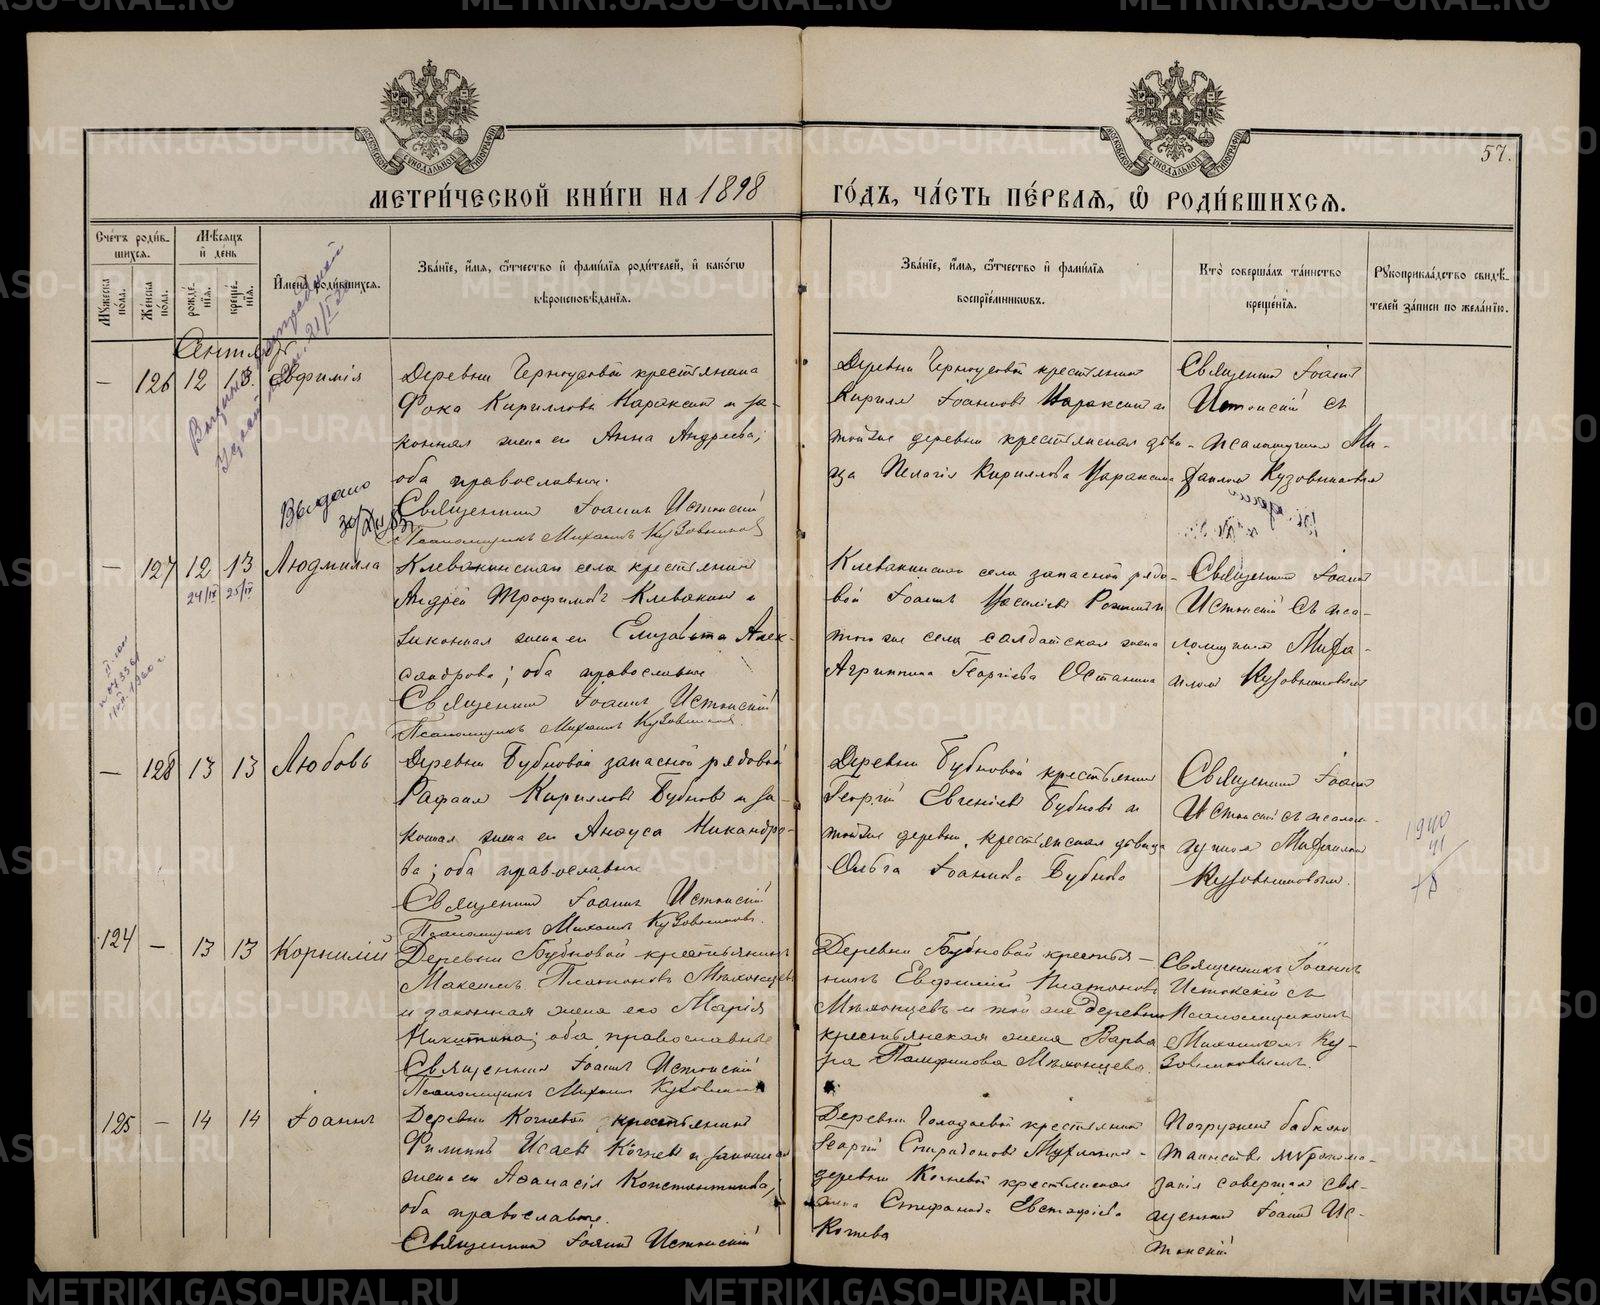 57.
МЕТРИ́ЧЕСКОЙ КНИ́ГИ НА 1898 ГО́ДЪ, ЧА́СТЬ ПЕ́РВАЯ, Ѡ҆ РОДИ́ВШИХСЯ.
Счéтъ роди́в-
шихся.
Мѣ́сяцъ
и҆ дéнь
Мꙋ́жеска пóла.
Жéнска пóла.
рождé-
нїѧ.
крещé-
нїѧ.
И҆менà роди́вшихся.
Звáнїе, и҆́мя, ѻ҆́тчество и҆ фамѝлїя роди́телей, и҆ какóгѡ
вѣроисповѣ́данїя.
Звáнїе, и҆́мя, ѻ҆́тчество и҆ фамѝлїя
воспрїéмникѡвъ.
Ктò совершáлъ тáинство
крещéнїя.
Рꙋкоприклáдство свидѣ́-
телей зáписи по желáнїю.
Сентябрь
— 126 12 13. Евфимія
Деревни Черноусовой крестьянинъ
Фока Кирилловъ Караксинъ и за-
конная жена его Анна Андреева;
оба православные.
Священникъ Іоаннъ Истокскій
Псаломщикъ Михаилъ Кузовниковъ
Деревни Черноусовой крестьянинъ
Кириллъ Іоанновъ и
той же деревни крестьянская дѣви-
ца Пелагія Кириллова
Священникъ Іоаннъ
Истокскій съ
псаломщикомъ Ми-
хаиломъ Кузовниковымъ
Выдано
— 127 12 13 Людмилла
24/IX 25/IX
Клевакинскаго села крестьянинъ
Андрей Трофимовъ Клевакинъ и
законная жена его Елизавета Алек-
сандрова; оба православные
Священникъ Іоаннъ Истокскій
Псаломщикъ Михаилъ Кузовниковъ.
Клевакинскаго села запасной рядо-
вой Іоаннъ Васильевъ и
того же села солдатская жена
Агриппина Георгіева Останина
Священникъ Іоаннъ
Истокскій съ пса-
ломщикомъ Миха-
иломъ Кузовниковымъ
— 128 13 13 Любовь
Деревни Бубновой запасной рядовой
Рафаилъ Кирилловъ Бубновъ и за-
конная жена его Анфуса Никандро-
ва; оба православные
Священникъ Іоаннъ Истокскій
Псаломщикъ Михаилъ Кузовниковъ.
Деревни Бубновой крестьянинъ
Георгій Евгеніевъ Бубновъ и
той же деревни крестьянская дѣвица
Ольга Іоаннова Бубнова
Священникъ Іоаннъ
Истокскій съ псалом-
щикомъ Михаиломъ
Кузовниковымъ.
1940
124 — 13 13 Корнилій
Деревни Бубновой крестьянинъ
Максимъ Платоновъ Мѣхонцевъ
и законная жена его Марія
Никитина; оба православные
Священникъ Іоаннъ Истокскій
Псаломщикъ Михаилъ Кузовниковъ
Деревни Бубновой крестья-
нинъ Евфимій Платоновъ
Мѣхонцевъ и той же деревни
крестьянская жена Варва-
ра Памфилова Мѣхонцева.
Священникъ Іоаннъ
Истокскій съ
Псаломщикомъ
Михаиломъ Ку-
зовниковымъ.
125 — 14 14 Іоаннъ
Деревни Кочневой крестьянинъ
Филиппъ Исаевъ Кочневъ и законная
жена его Афанасія Константинова;
оба православные.
Священникъ Іоаннъ Истокскій
Деревни крестьянинъ
Георгій Спиридоновъ
деревни Кочневой крестьянская
жена Стефанида Евстафіева
Кочнева
Погруженъ бабкою
таинство мѵропома-
занія совершалъ свя-
щенникъ Іоаннъ Ис-
токскій
METRIKI.GASO-URAL.RU